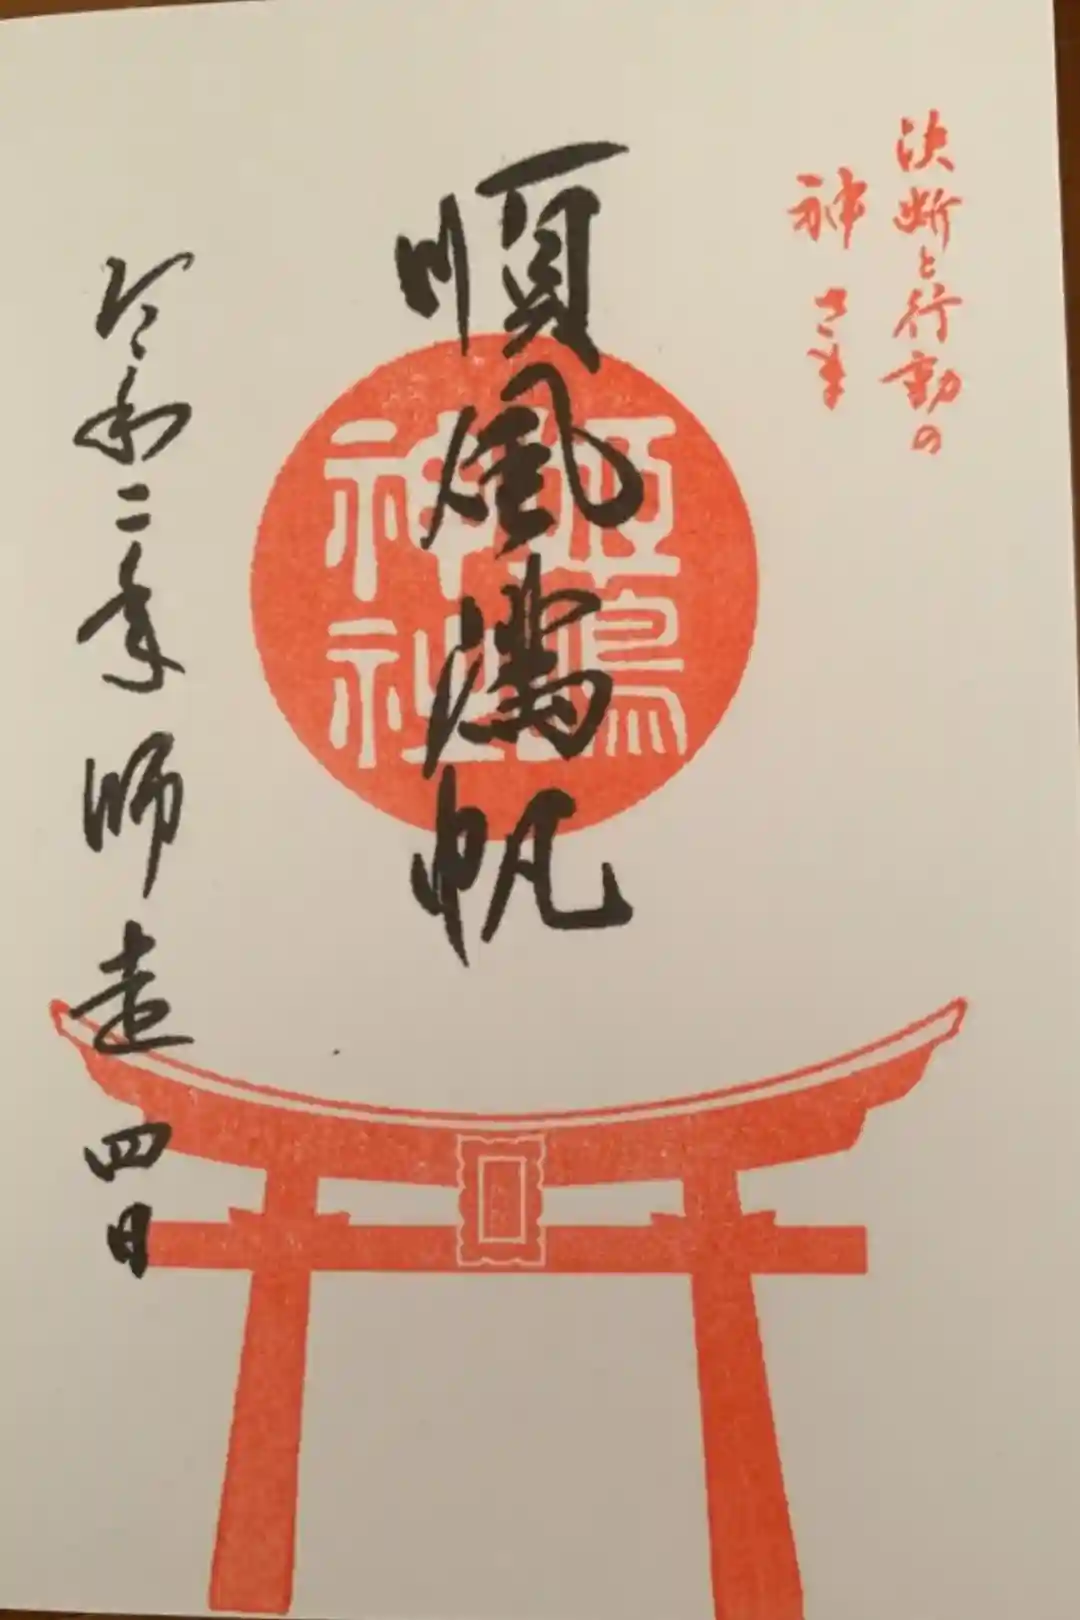 決断と行動の
神さま
順風満帆
姫嶋
神社
令和二年師走四日